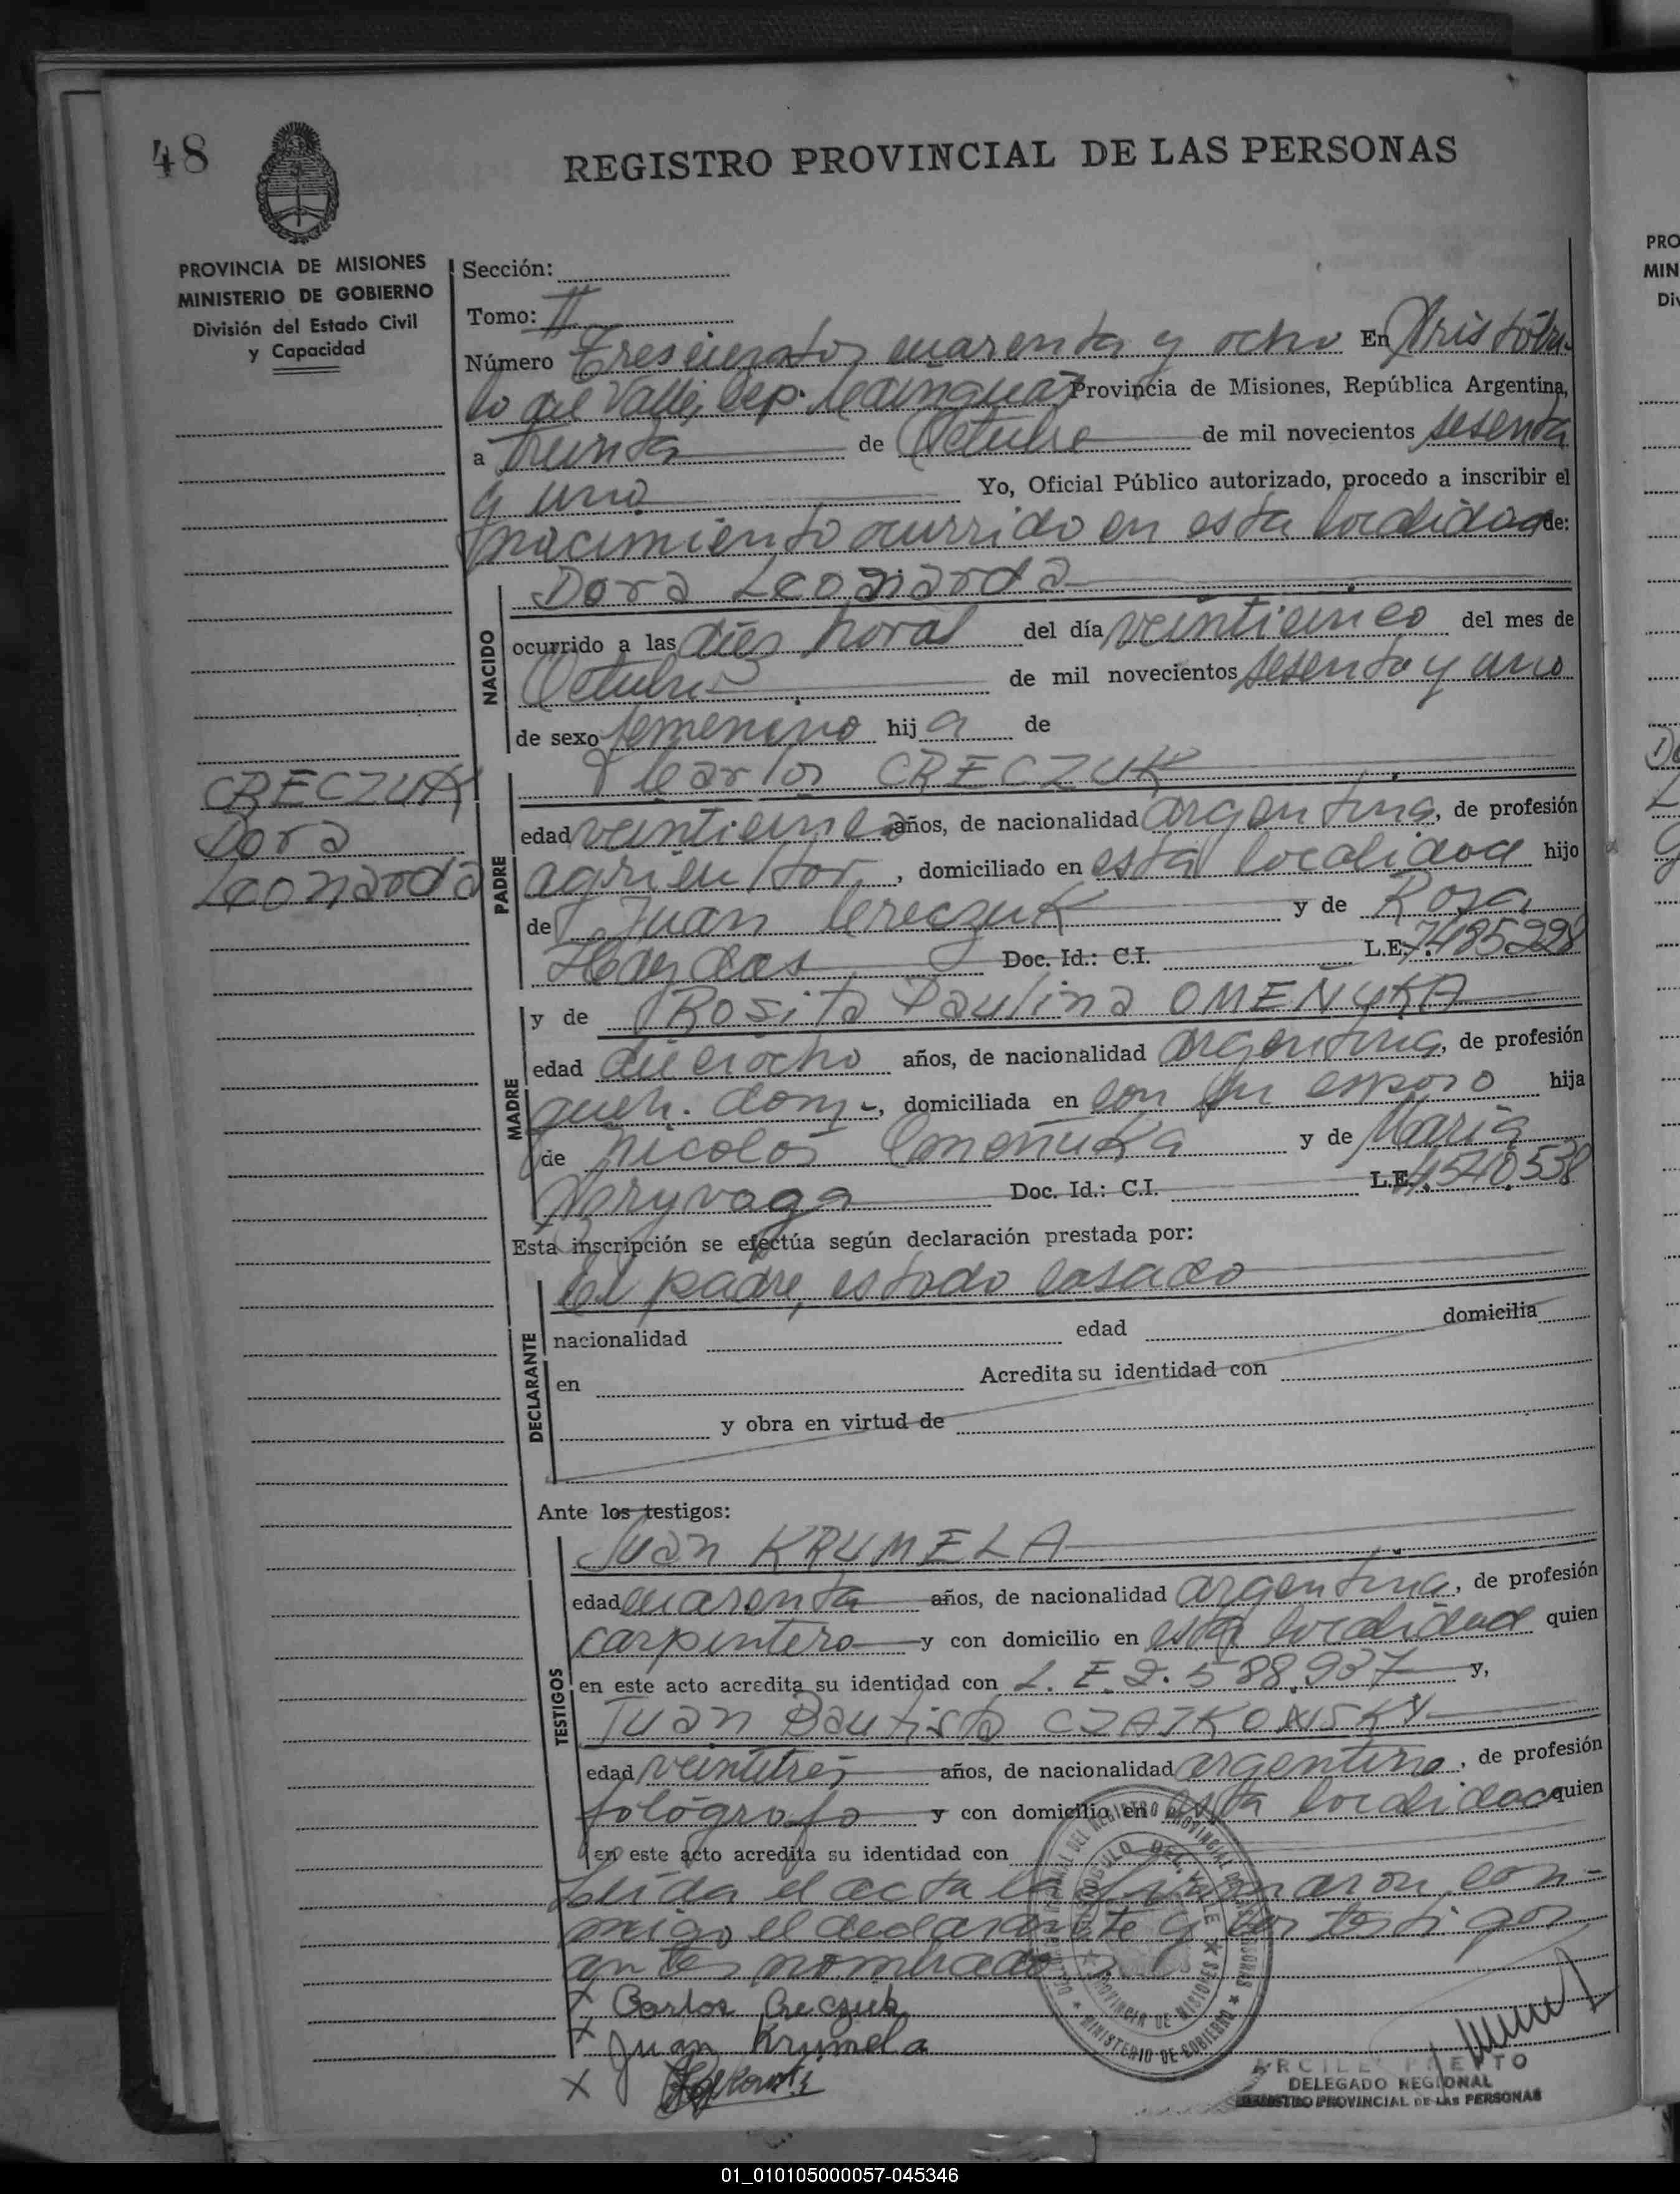 48
REGISTRO PROVINCIAL DE LAS PERSONAS
PROVINCIA DE MISIONES
MINISTERIO DE GOBIERNO
División del Estado Civil
y Capacidad
CRECZUK
Dora
Leonarda
Sección:
Tomo: II
Número Trescientos cuarenta y ocho En Aristóbu-
lo del Valle, Dep. Cainguas Provincia de Misiones, República Argentina,
a treinta de Octubre de mil novecientos sesenta
y uno Yo, Oficial Público autorizado, procedo a inscribir el
nacimiento ocurrido en esta localidad de:
NACIDO
Dora Leonarda
ocurrido a las diez horas del día veinticinco del mes de
Octubre de mil novecientos sesenta y uno
de sexo femenino hij a de
PADRE
Carlos CRECZUK
edad veinticinco años, de nacionalidad argentina, de profesión
agricultor, domiciliado en esta localidad hijo
de Juan Creczuk y de Rosa
Doc. Id.: C.I. L.E. 7.485.228
MADRE
y de Rosita Paulina OMEÑUKA
edad dieciocho años, de nacionalidad argentina, de profesión
queh. dom., domiciliada en con su esposo hija
de Nicolás Omeñuka y de María
Doc. Id.: C.I. L.E. 4.540.538
Esta inscripción se efectúa según declaración prestada por:
DECLARANTE
el padre, estado casado
nacionalidad edad domicilia
en Acredita su identidad con
y obra en virtud de
Ante los testigos:
TESTIGOS
Juan KRUMELA
edad cuarenta años, de nacionalidad argentina, de profesión
carpintero y con domicilio en esta localidad quien
en este acto acredita su identidad con L. E. 2.588.937 y,
Juan Bautista CZAJKOWSKY
edad veintitrés años, de nacionalidad argentino, de profesión
fotógrafo y con domicilio en esta localidad quien
en este acto acredita su identidad con
Leida el acta la firmaron con-
migo el declarante y los testigos
antes nombrados
x Carlos Creczuk
x Juan Krumela
x
PROVINCIA DE MISIONES
MINISTERIO DE GOBIERNO
DELEGADO REGIONAL
REGISTRO PROVINCIAL DE LAS PERSONAS
PRO
MIN
Div
01_010105000057-045346